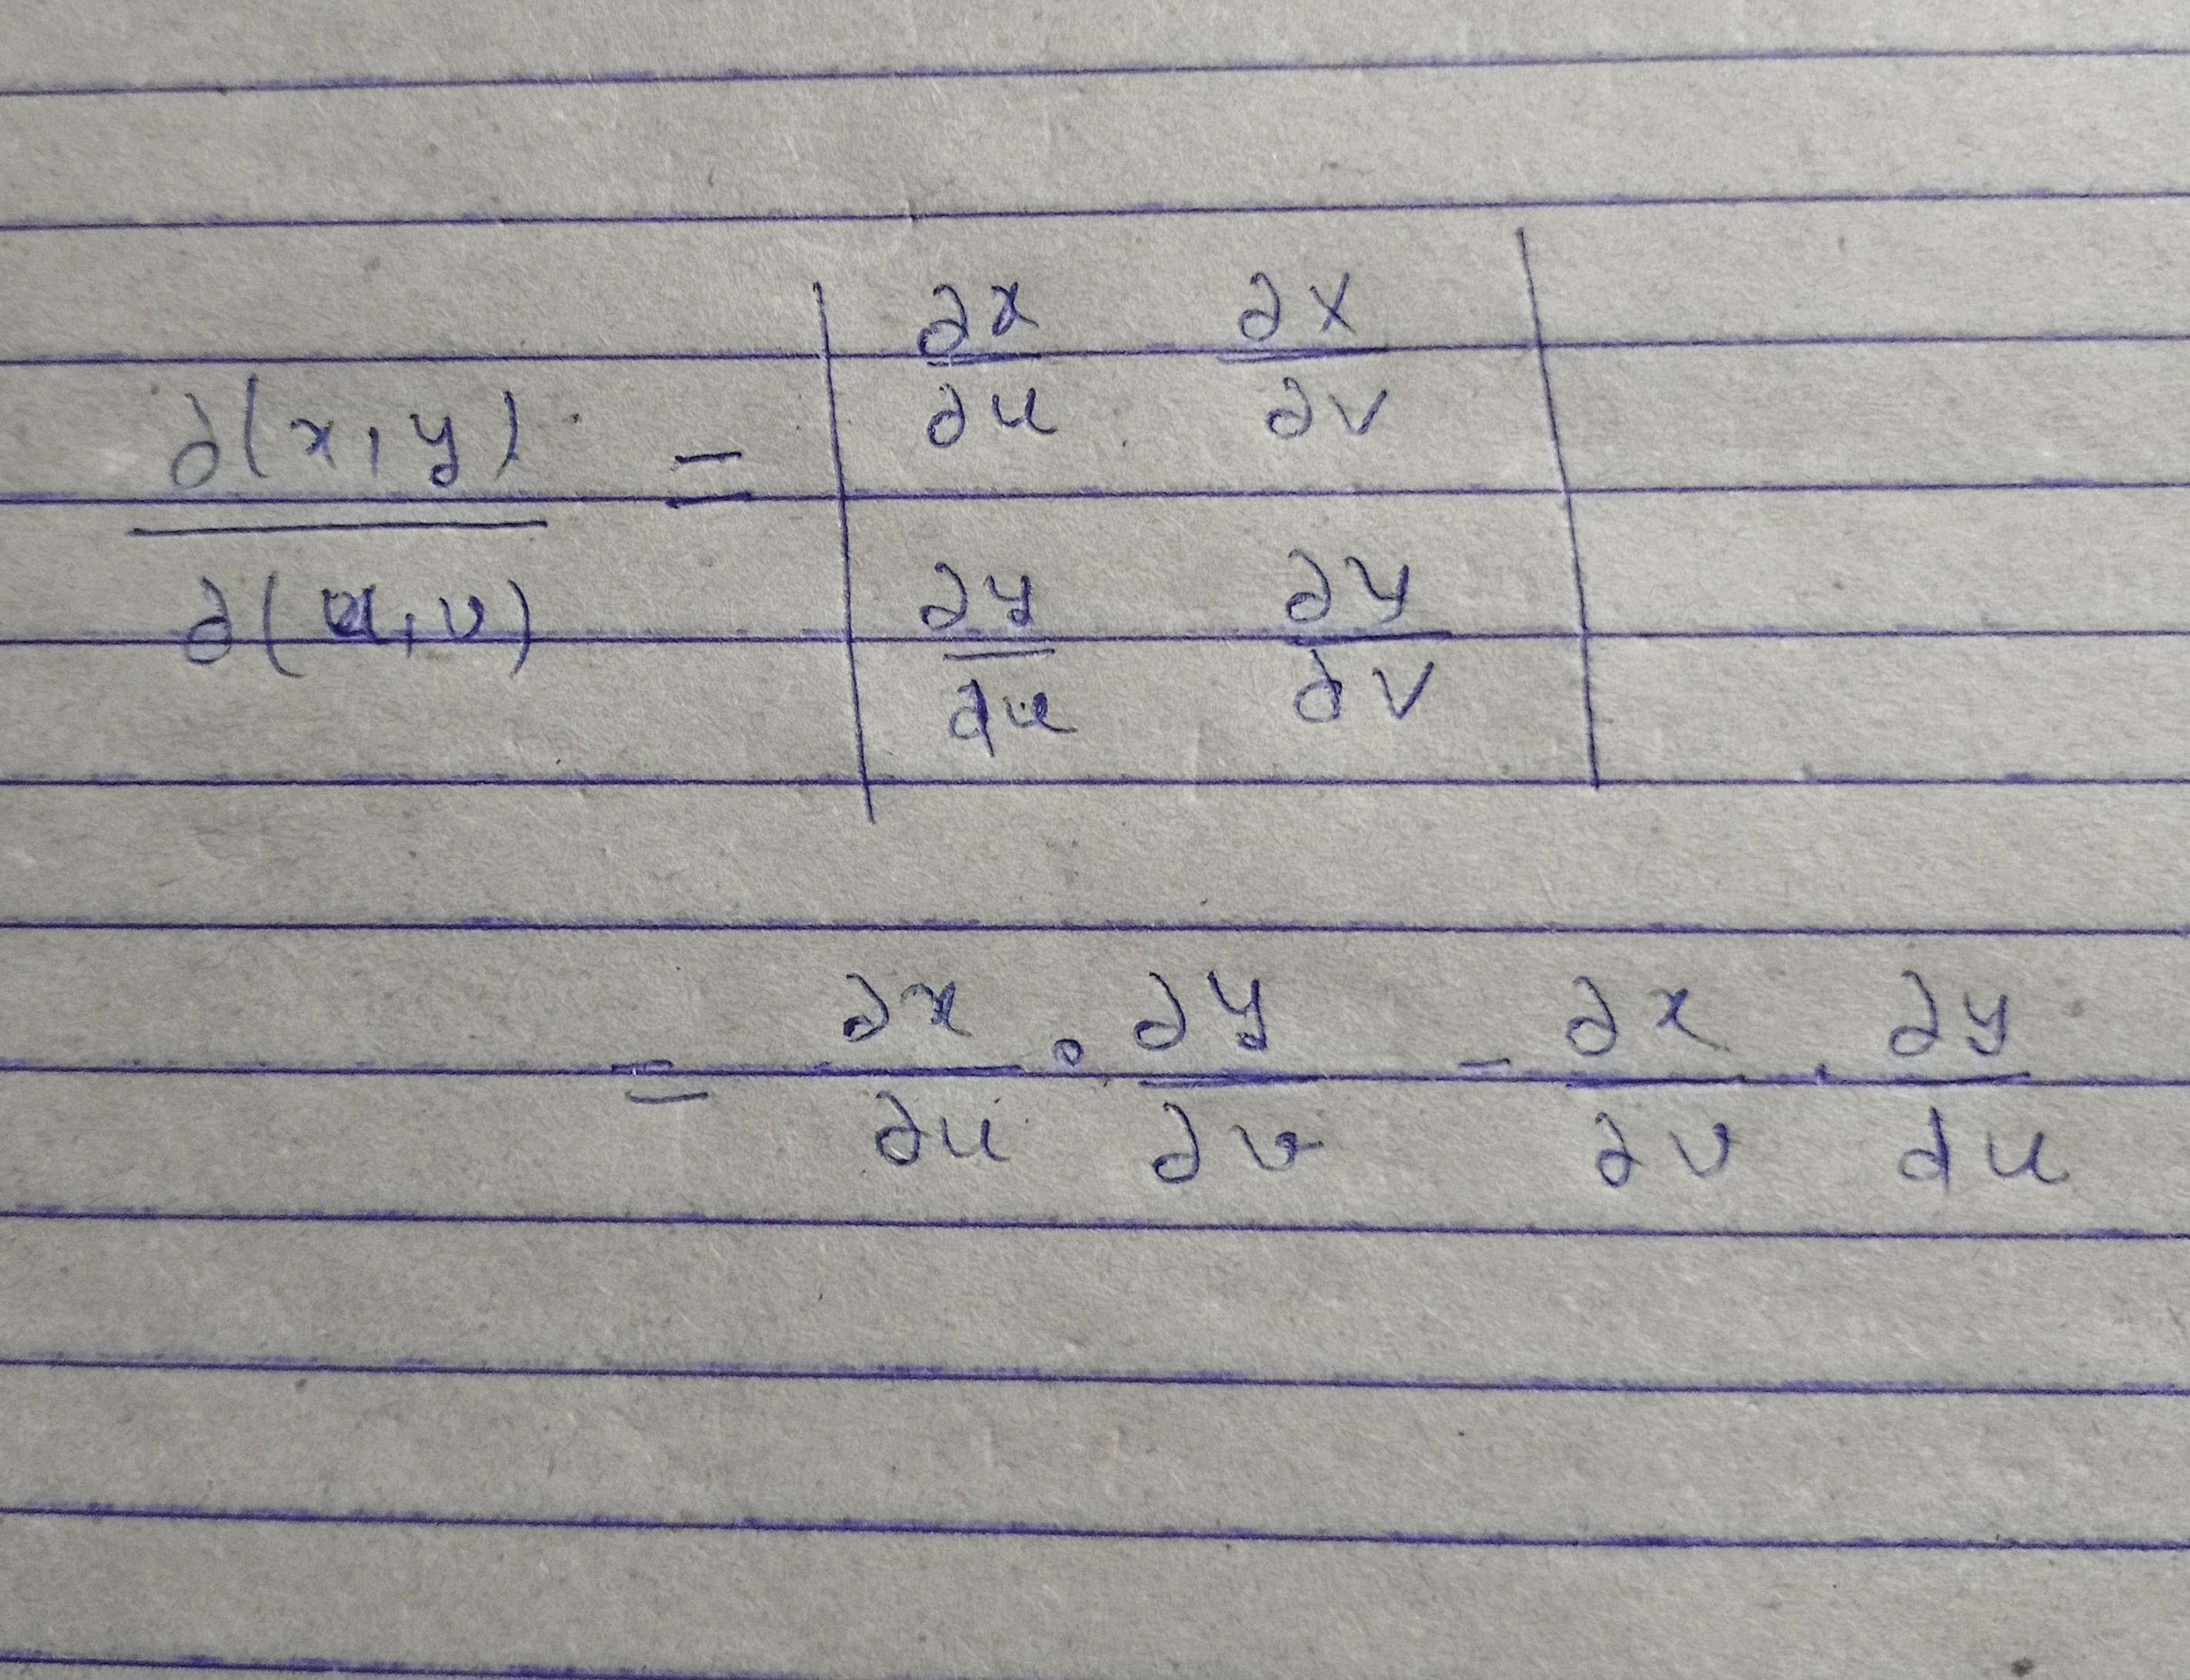 ∂(x,y)/∂(u,v) = | ∂x/∂u ∂x/∂v |
| ∂y/∂u ∂y/∂v |
= ∂x/∂u · ∂y/∂v - ∂x/∂v · ∂y/∂u